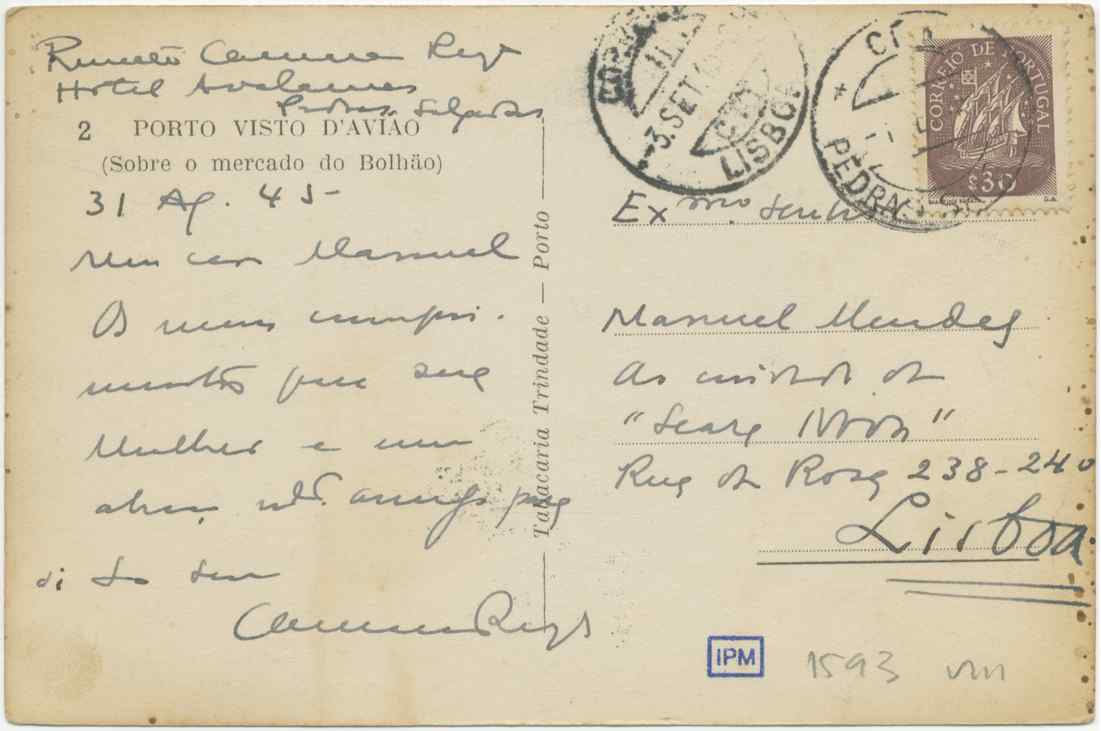 Hotel Avelames
Pedras Salgadas
2 PORTO VISTO D'AVIÃO
(Sobre o mercado do Bolhão)
31 Ag. 45
Meu caro Manuel
Os meus cumpri-
mentos para sua
Mulher e um
amigo para
si do seu
Camara Reys
Tabacaria Trindade — Porto
CORREIOS
3. SET
LISBOA
PEDRAS
CORREIO DE PORTUGAL
$30
Exmo senhor
Manuel Mendes
Ao cuidado da
"Seara Nova"
Rua da Rosa 238-240
Lisboa
IPM
1593 VIII